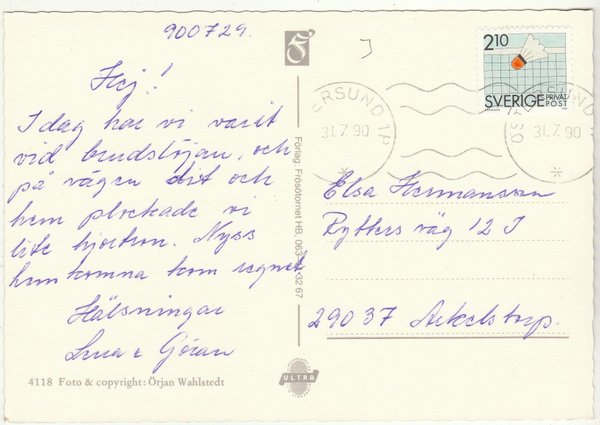 900729.
Hej!
I dag har vi varit
vid brudslöjan, och
på vägen dit och
hem plockade vi
lite hjortron. Nyss
hemkomna kom regnet.
Hälsningar
Göran
4118 Foto & copyright: Örjan Wahlstedt
Förlag: Frösötornet HB, 063 32 67
ULTRA
2,10
SVERIGE PRIVAT POST
ERSUND 1P
31.7.90
ÖSTERSUND
31.7.90
Elsa Hermansson
Ryttars väg 12 I
29037 Arkelstorp.